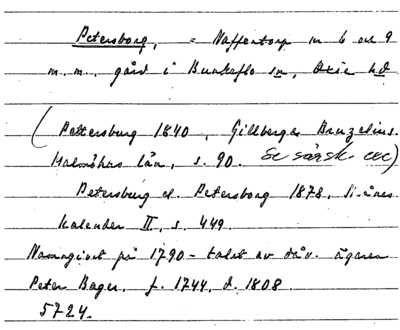 Petersborg, = Naffentorp nr 6 och 9
m.m., gård i Bunkeflo sn, Oxie hd
(Pettersburg 1840, Gillberg-Bruzelius.
Malmöhus län, s. 90. Se särsk. exc)
Petersburg el. Petersborg 1878, Skånes
kalender II, s. 449.
Namngivet på 1790-talet av dåv. ägaren
Peter Bager, f. 1744, d. 1808.
5724.